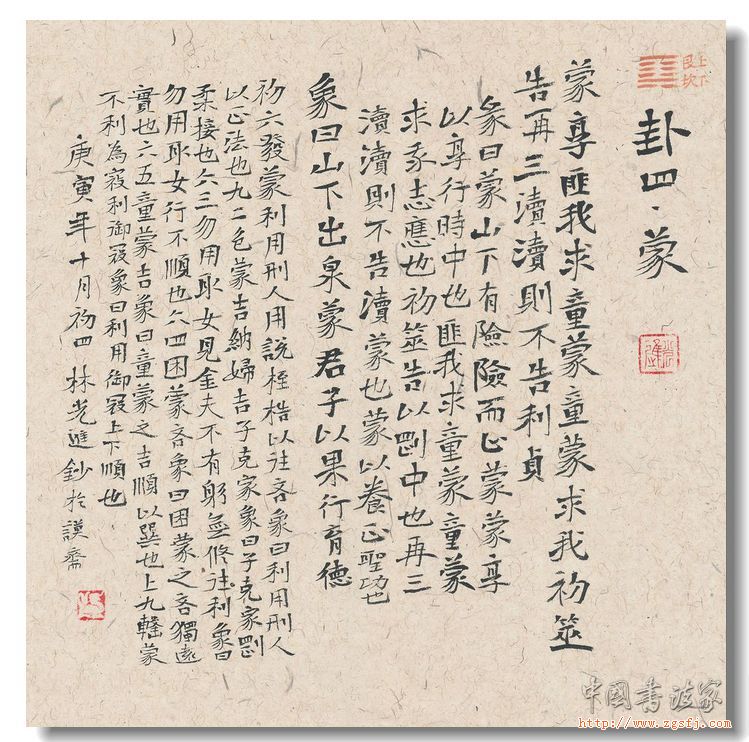 艮上
坎下
卦四、蒙
蒙亨匪我求童蒙童蒙求我初筮
告再三瀆瀆則不告利貞
彖曰蒙山下有險險而止蒙蒙亨
以亨行時中也匪我求童蒙童蒙
求我志應也初筮告以剛中也再三
瀆瀆則不告瀆蒙也蒙以養正聖功也
象曰山下出泉蒙君子以果行育德
初六發蒙利用刑人用說桎梏以往吝象曰利用刑人
以正法也九二包蒙吉納婦吉子克家象曰子克家剛
柔接也六三勿用取女見金夫不有躬無攸往利象曰
勿用取女行不順也六四困蒙吝象曰困蒙之吝獨遠
實也六五童蒙吉象曰童蒙之吉順以巽也上九擊蒙
不利為寇利御寇象曰利用御寇上下順也
庚寅年十月初四林光進鈔於謨齋
中国书法家
http://www.zgsfj.com